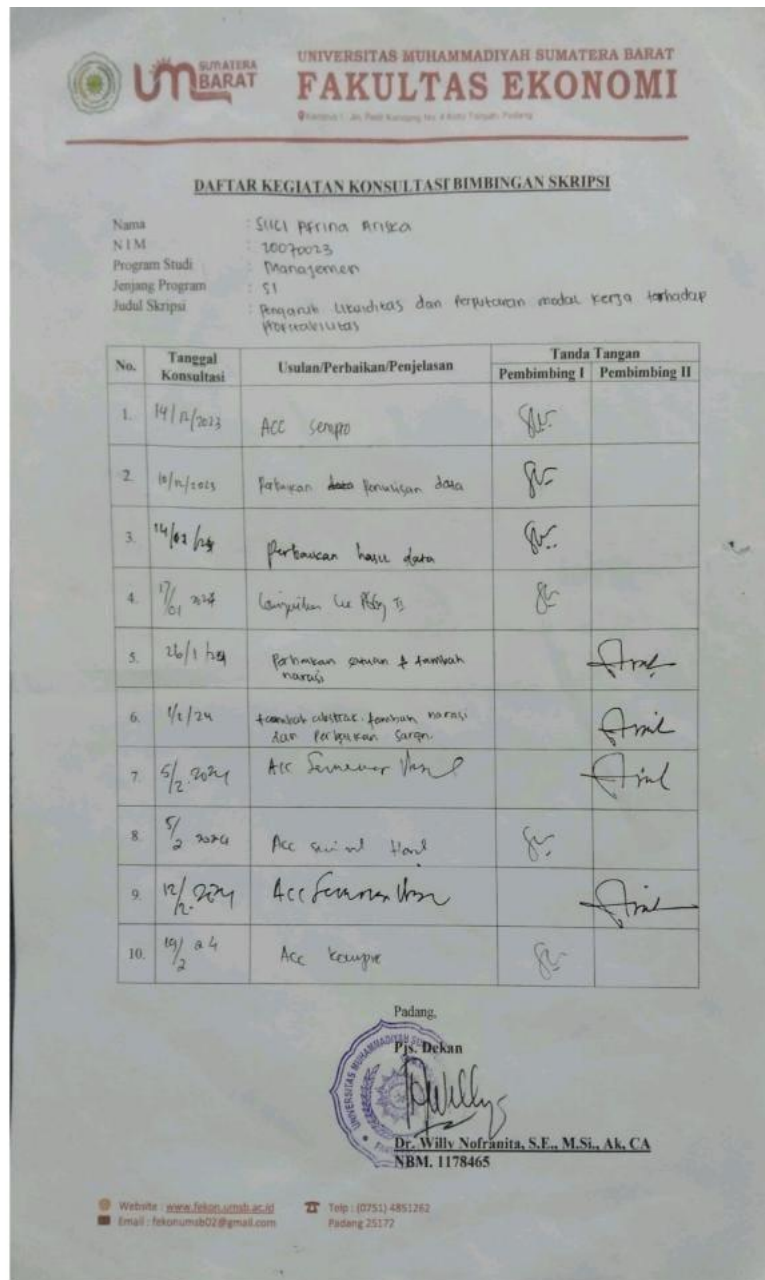 UM SUMATERA BARAT
UNIVERSITAS MUHAMMADIYAH SUMATERA BARAT
FAKULTAS EKONOMI
DAFTAR KEGIATAN KONSULTASI BIMBINGAN SKRIPSI
Nama : SUCI Afrina Ariska
NIM : 20070023
Program Studi : Manajemen
Jenjang Program : S1
Judul Skripsi : Pengaruh Likuiditas dan Perputaran modal kerja terhadap
Profitabilitas
No. Tanggal Konsultasi Usulan/Perbaikan/Penjelasan Tanda Tangan
Pembimbing I Pembimbing II
1. 14/12/2023 ACC sempro
2. Perbaikan data Penulisan data
3. Perbaikan hasil data
4. 17/01 2024
5. 26/1/24 Perbaikan satuan & tambah
narasi
6. 1/2/24 tambah abstrak. tambah narasi
dan Perbaikan Saran.
7. 5/2.2024 Acc Seminar Hasil
8. 5/2 2024 Acc Hasil
9. 12/2.2024 Acc Seminar Hasil
10. 19/2 24 Acc kompre
Padang,
Pjs. Dekan
Dr. Willy Nofranita, S.E., M.Si., Ak, CA
NBM. 1178465
Website : www.fekon.umsb.ac.id Telp : (0751) 4851262
Email : fekonumsb02@gmail.com Padang 25172